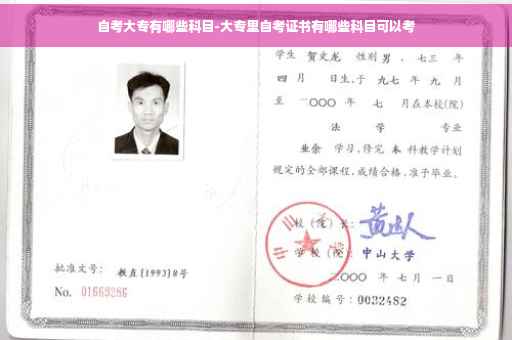 自考大专有哪些科目-大专里自考证书有哪些科目可以考
学生 贺文龙 性别 男 、七三 年
四 月 日生,于 九七 年 九 月
至 二〇〇〇 年 七 月在本校(院)
法 学 专业
业余 学习,修完 本 科教学计划
规定的全部课程,成绩合格,准予毕业。
校 (院) 长:
学 校 (院): 中山大学
二〇〇〇 年 七 月 一 日
批准文号: 教直(1993)8号
No. 01669286
学校编号: 0032482